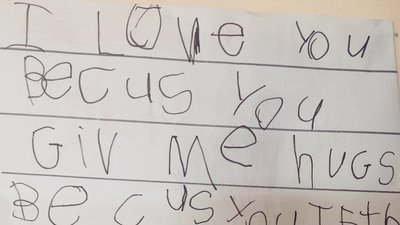 I LOVe YOU
BeCUS You
GIV Me hUGS
Be CUS